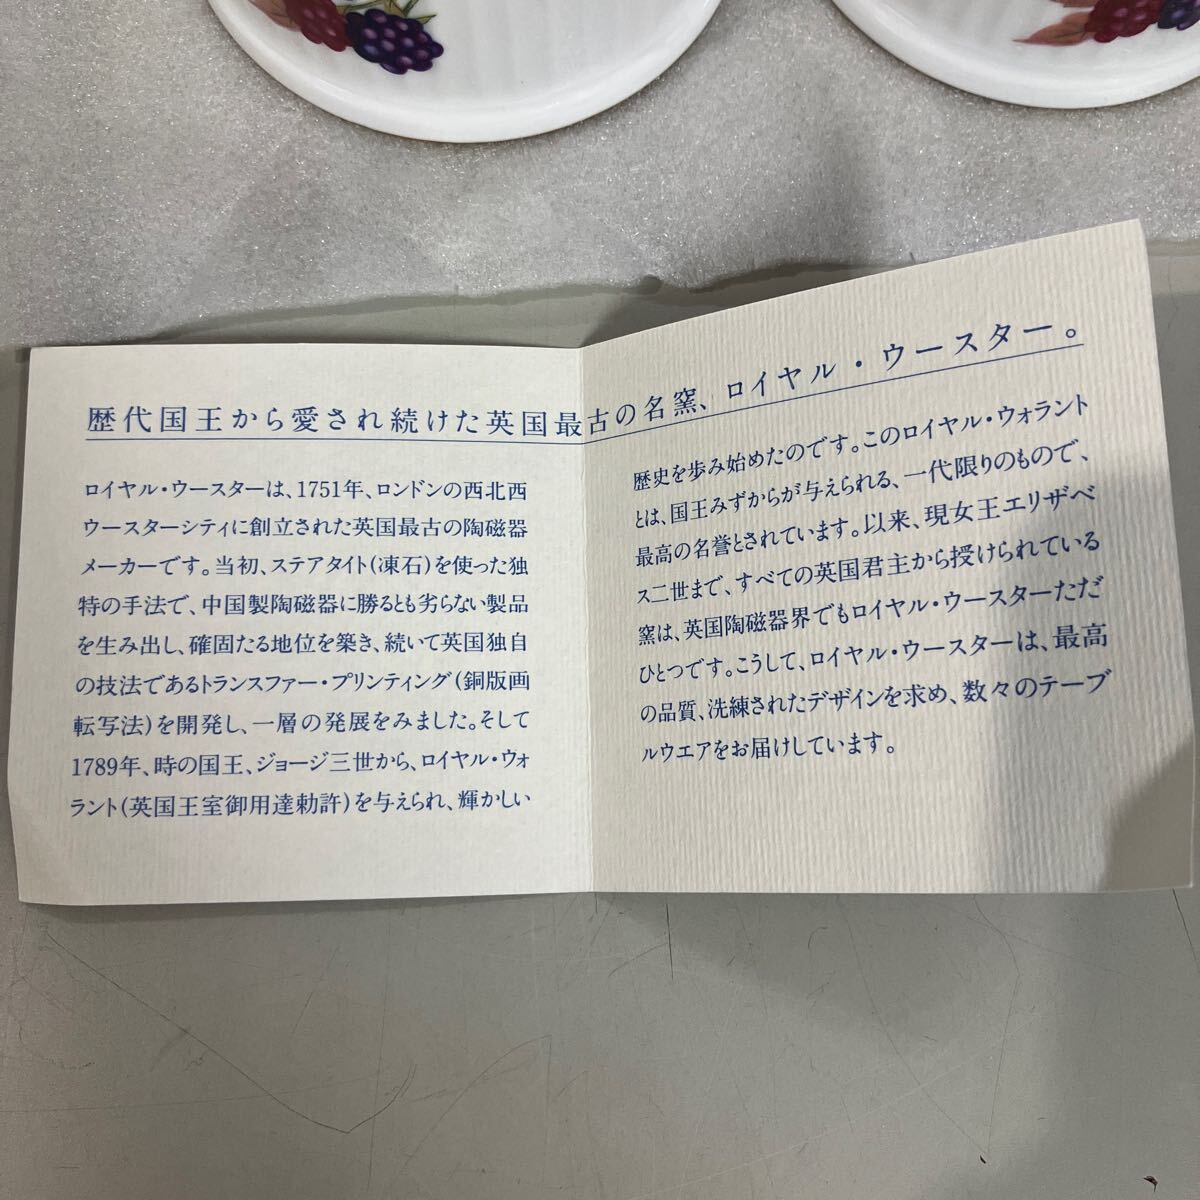 歴代国王から愛され続けた英国最古の名窯、ロイヤル・ウースター。
ロイヤル・ウースターは、1751年、ロンドンの西北西
ウースターシティに創立された英国最古の陶磁器
メーカーです。当初、ステアタイト(凍石)を使った独
特の手法で、中国製陶磁器に勝るとも劣らない製品
を生み出し、確固たる地位を築き、続いて英国独自
の技法であるトランスファー・プリンティング(銅版画
転写法)を開発し、一層の発展をみました。そして
1789年、時の国王、ジョージ三世から、ロイヤル・ウォ
ラント(英国王室御用達勅許)を与えられ、輝かしい
歴史を歩み始めたのです。このロイヤル・ウォラント
とは、国王みずからが与えられる、一代限りのもので、
最高の名誉とされています。以来、現女王エリザベ
ス二世まで、すべての英国君主から授けられている
窯は、英国陶磁器界でもロイヤル・ウースターただ
ひとつです。こうして、ロイヤル・ウースターは、最高
の品質、洗練されたデザインを求め、数々のテーブ
ルウエアをお届けしています。